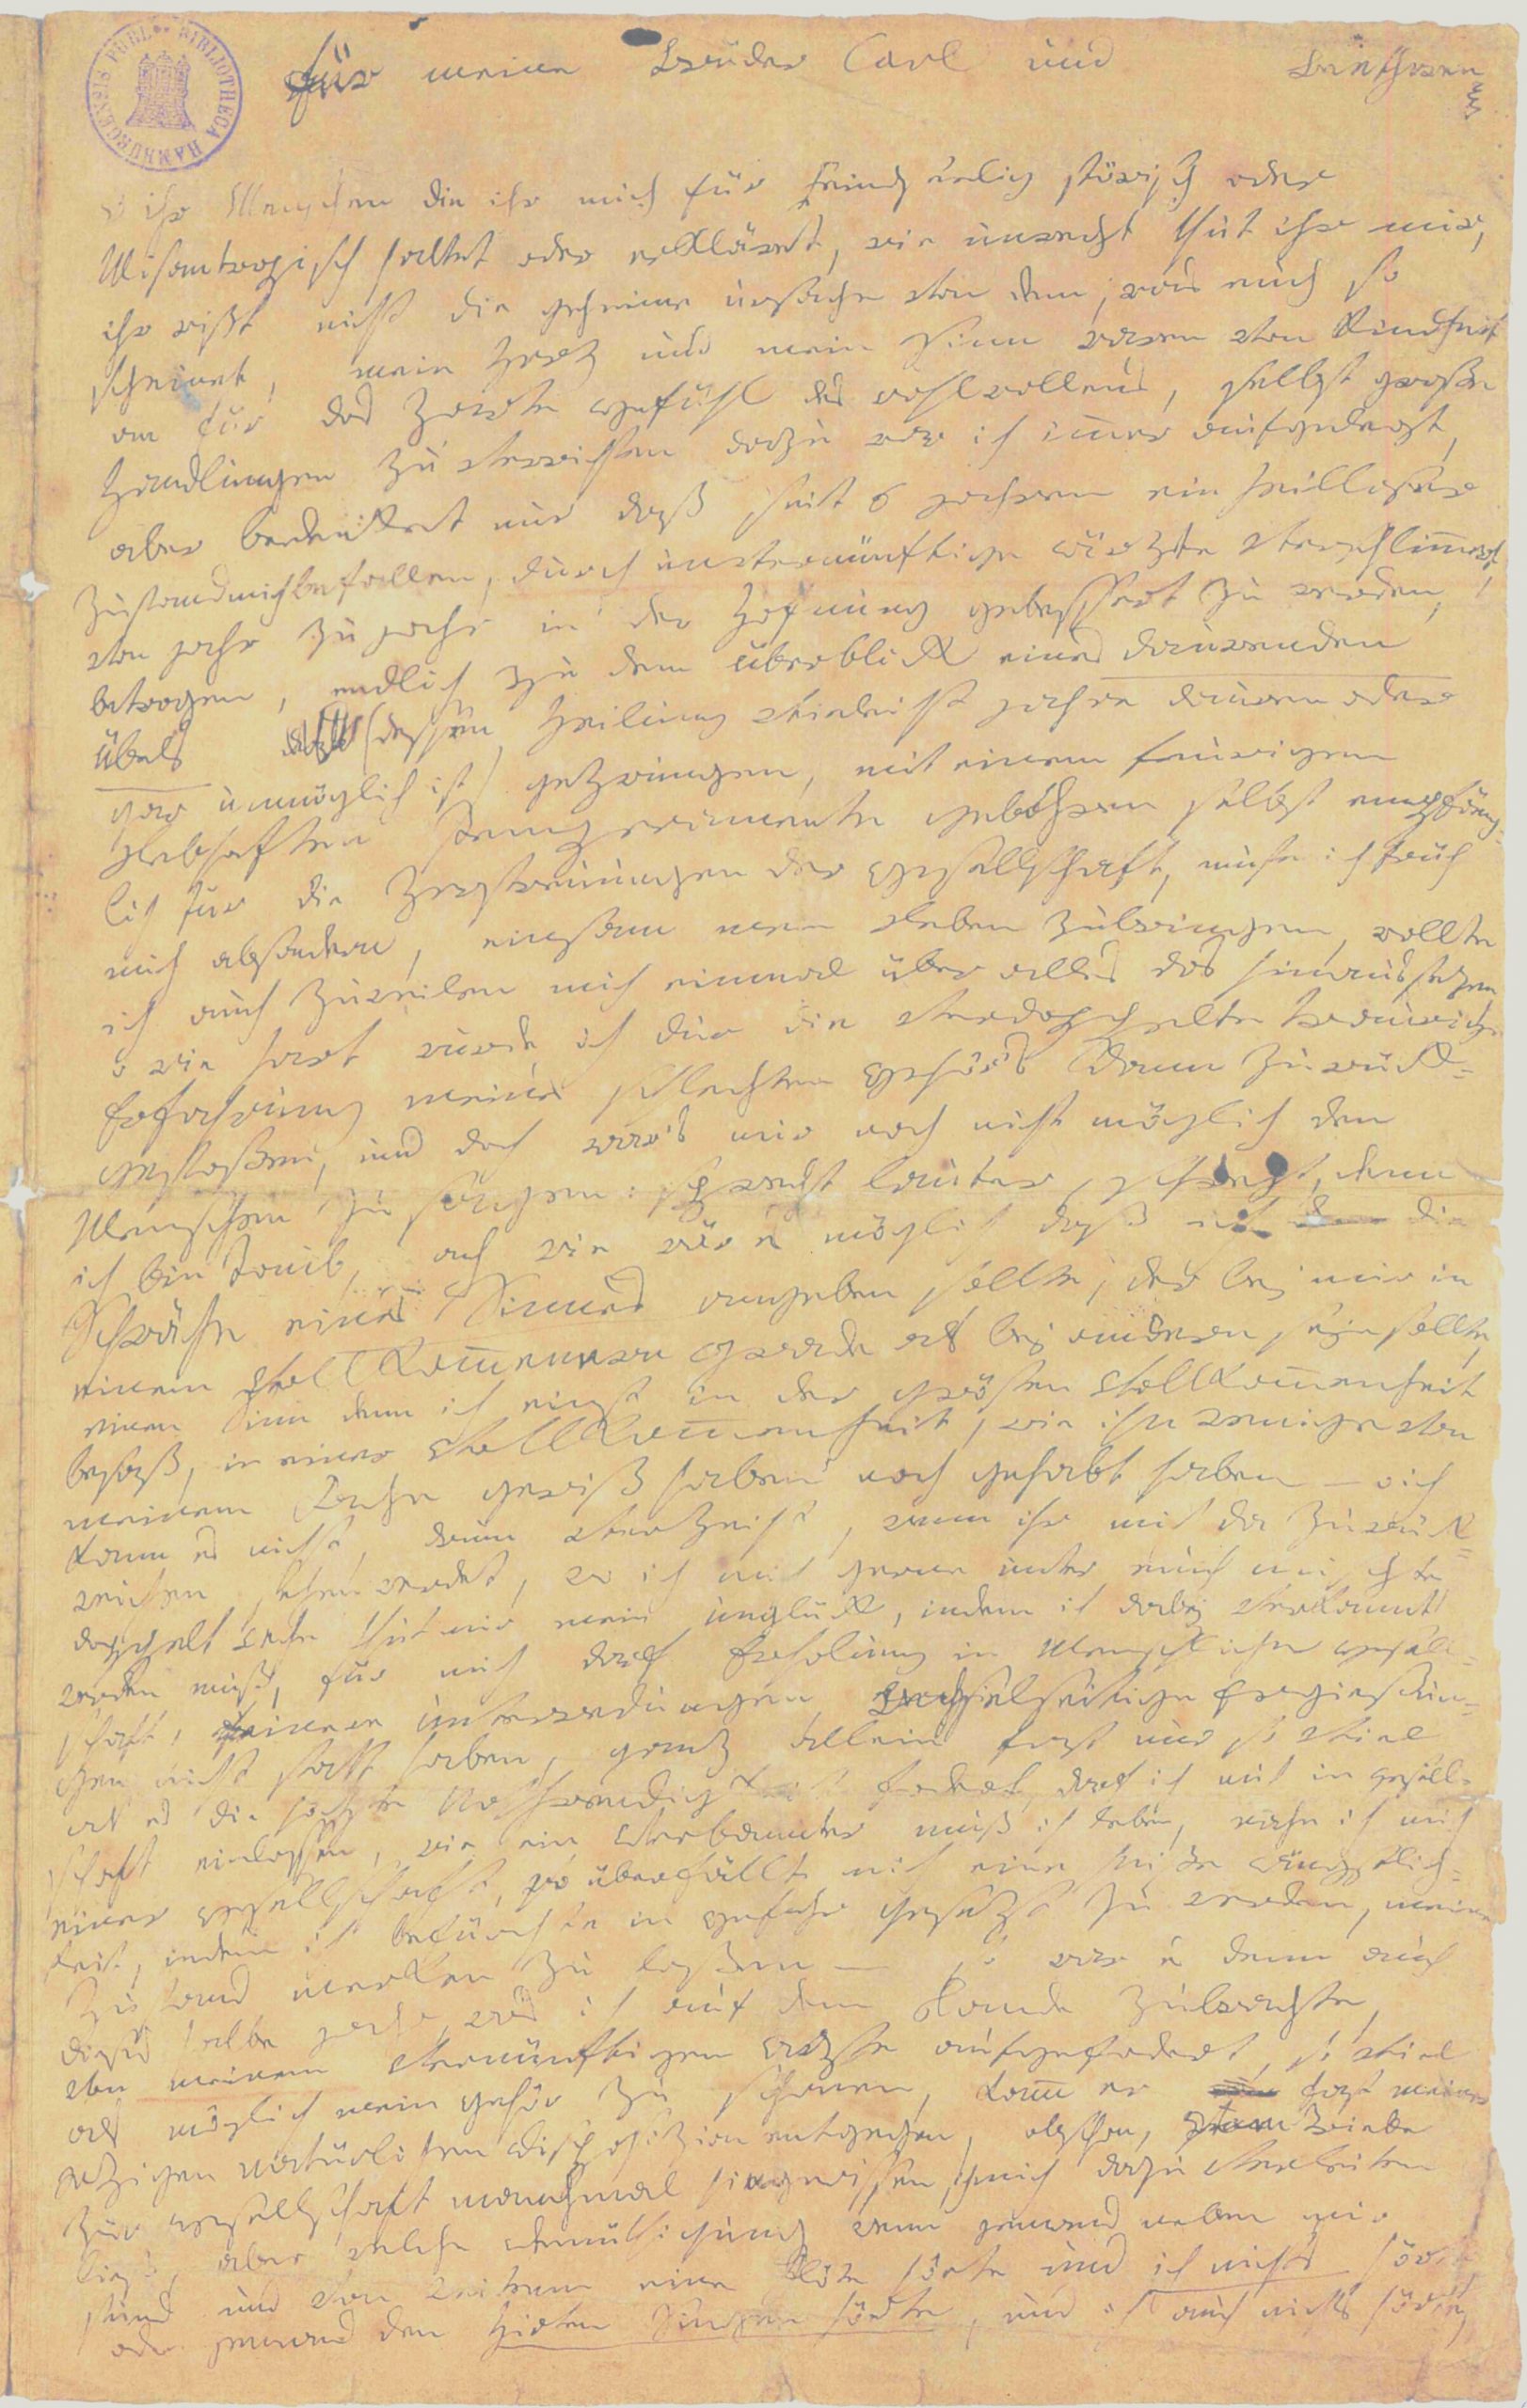 BIBLIOTHECA HAMBURGENSIS PUBL.
für meine Brüder Carl und Beethowen
o ihr Menschen die ihr mich für Feindseelig störisch oder
Misantropisch haltet oder erkläret, wie unrecht thut ihr mir,
ihr wißt nicht die geheime urßache von dem, was euch so
scheinet, mein Herz und mein Sinn waren von Kindheit
an für das Zarte Gefühl des wohlwollens, selbst große
Handlungen zu verrichten dazu war ich imer aufgelegt,
aber bedenket nur daß seit 6 jahren ein heilloser
Zustand mich befallen, durch unvernünftige ärtzte verschlimert,
von jahr zu jahr in der Hofnung gebessert zu werden,
betrogen, endlich zu dem überblick eines daurenden
Übels (dessen Heilung vieleicht jahre dauren oder
gar unmöglich ist) gezwungen, mit einem feurigem
Lebhaften Temperamente gebohren selbst empfäng-
lich für die Zerstreuungen der Gesellschaft, muste ich früh
mich absondern, einsam mein Leben zubringen, wollte
ich auch zuweilen mich einmal über alles das hinaussezen,
o wie hart wurde ich dur die verdoppelte traurige
Erfahrung meines schlechten Gehör's dann zurück-
gestoßen, und doch war's mir noch nicht möglich den
Menschen zu sagen: sprecht lauter, schrejt, denn
ich bin Taub, ach wie wär es möglich daß ich die
Schwäche eines Sinnes angeben sollte, der bej mir in
einem Vollkomenern Grade als bej andern sejn sollte,
einen Sinn denn ich einst in der grösten Vollkomenheit
besaß, in einer Vollkomenheit, wie ihn wenige von
meinem Fache gewiß haben noch gehabt haben — o ich
kann es nicht, drum verzeiht, wenn ihr mich da zurück-
weichen sehen werdet, wo ich mich gerne unter euch mischte
doppelt wehe thut mir mein unglück, indem ich dabej verkannt
werden muß, für mich darf Erholung in Menschlicher Gesell-
schaft, feinere unterredungen, Wechselseitige Ergießun-
gen nicht statt haben, ganz allein fast nur so viel
als es die höchste Nothwendigkeit fodert, darf ich mich in gesell-
schaft einlassen, wie ein Verbannter muß ich leben, nahe ich mich
einer Gesellschaft, so überfällt mich eine heiße ängstlich-
keit, indem ich befürchte in Gefahr gesezt zu werden, meinen
Zustand merken zu laßen — so war es denn auch
dieses halbe jahr, was ich auf dem Lande zubrachte,
von meinem vernünftigen Arzte aufgefodert, so viel
als möglich mein Gehör zu schonen, kamm er fast meiner
jezigen natürlichen Disposizion entgegen, obschon, vom Triebe
zur Gesellschaft manchmal hingerissen, ich mich dazu verleiten
ließ, aber welche Demüthigung wenn jemand neben mir
stund und von weitem eine Flöte hörte und ich nichts hörte,
oder jemand den Hirten Singen hörte, und ich auch nichts hörte,